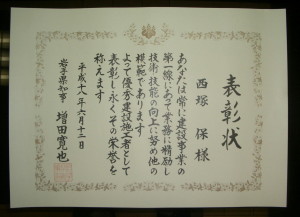 表彰状
西塚 保 様
あなたは常に建設事業の
第一線にあって業務に精励し
技術技能の向上に努め他の
模範であります
よって優秀建設施工者として
表彰し永くその栄誉を
称えます
平成十八年六月十二日
岩手県知事 増田寛也